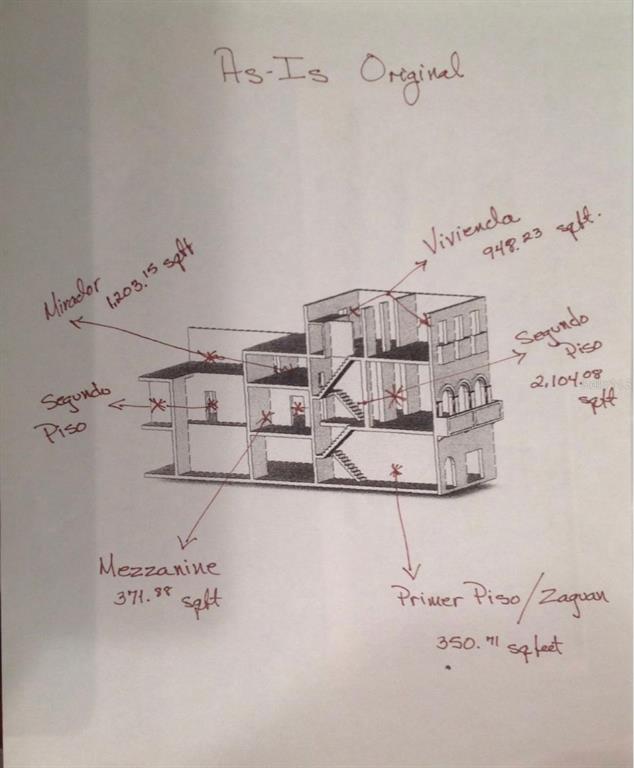 As-Is Original
Vivienda
948.23 sqft.
Mirador 1,203.15 sqft
Segundo
Piso
2,104.08
sqft
Segundo
Piso
Mezzanine
371.88 sqft
Primer Piso/Zaguan
350.71 sqfeet